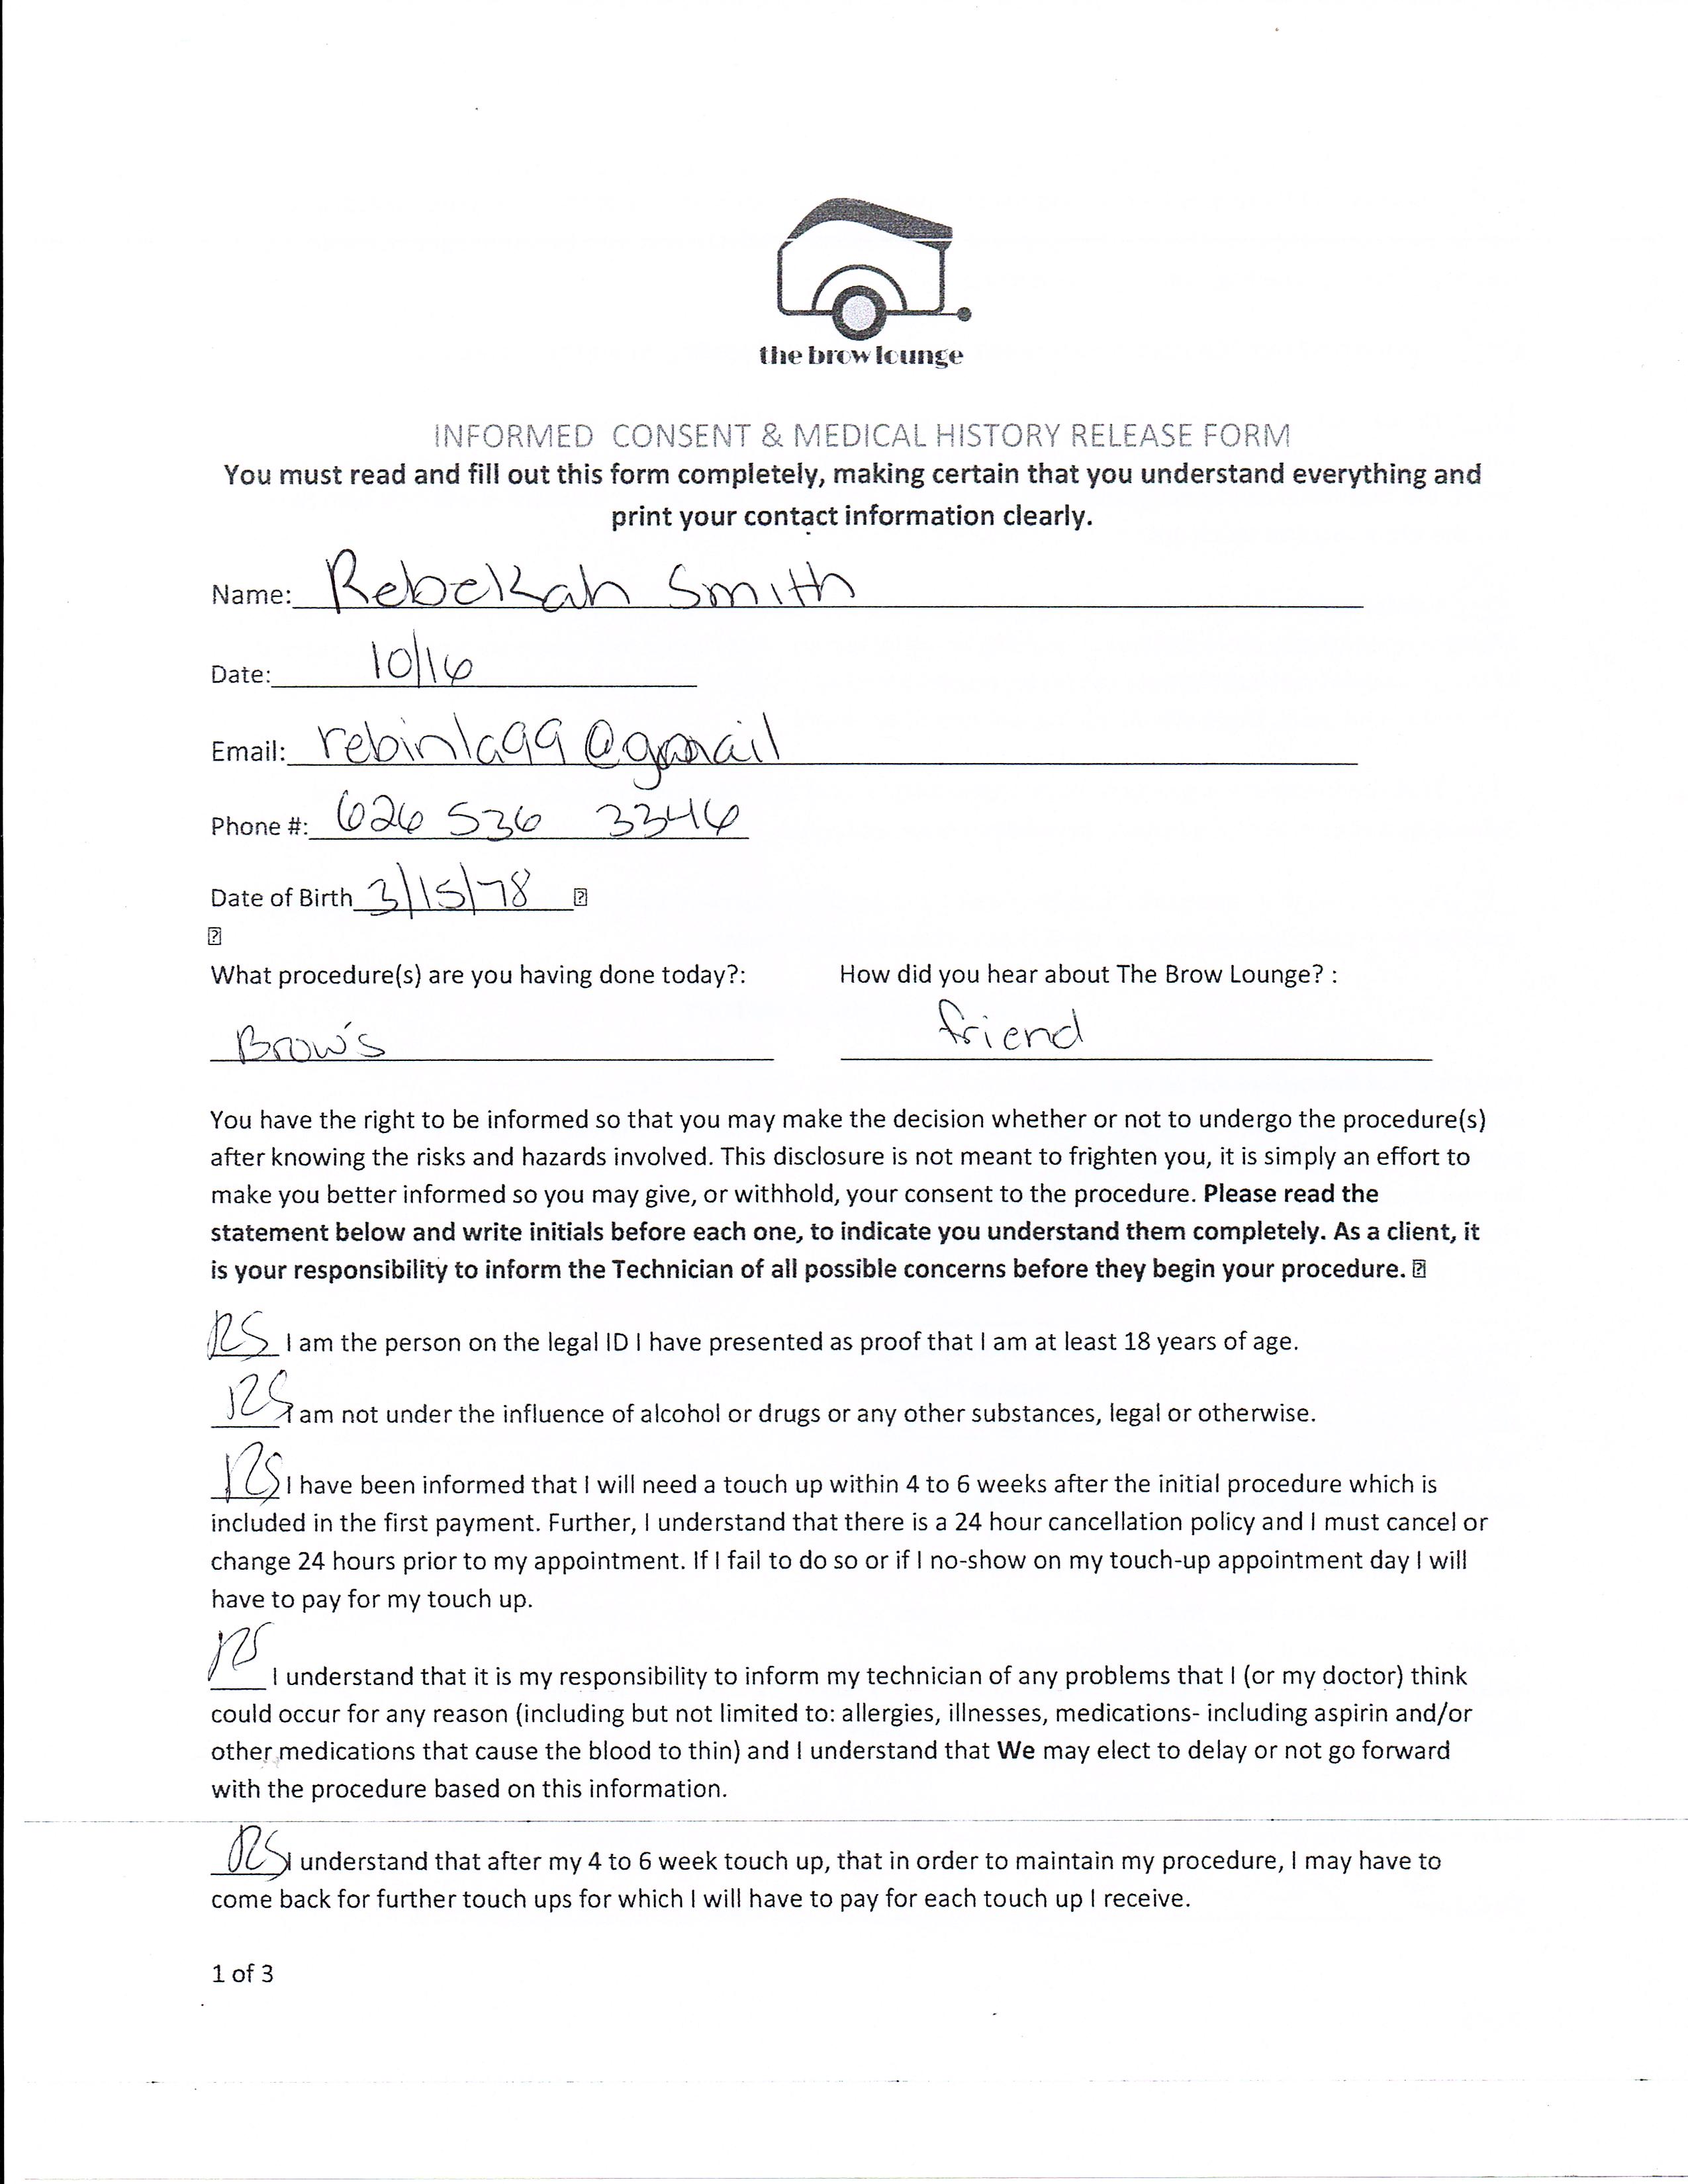 the brow lounge
INFORMED CONSENT & MEDICAL HISTORY RELEASE FORM
You must read and fill out this form completely, making certain that you understand everything and
print your contact information clearly.
Name: Rebekah Smith
Date: 10/16
Email: rebinla99@gmail
Phone #: 626 536 3346
Date of Birth 3/15/78
What procedure(s) are you having done today?: How did you hear about The Brow Lounge? :
Brow's friend
You have the right to be informed so that you may make the decision whether or not to undergo the procedure(s)
after knowing the risks and hazards involved. This disclosure is not meant to frighten you, it is simply an effort to
make you better informed so you may give, or withhold, your consent to the procedure. Please read the
statement below and write initials before each one, to indicate you understand them completely. As a client, it
is your responsibility to inform the Technician of all possible concerns before they begin your procedure.
RS I am the person on the legal ID I have presented as proof that I am at least 18 years of age.
RS I am not under the influence of alcohol or drugs or any other substances, legal or otherwise.
RS I have been informed that I will need a touch up within 4 to 6 weeks after the initial procedure which is
included in the first payment. Further, I understand that there is a 24 hour cancellation policy and I must cancel or
change 24 hours prior to my appointment. If I fail to do so or if I no-show on my touch-up appointment day I will
have to pay for my touch up.
RS I understand that it is my responsibility to inform my technician of any problems that I (or my doctor) think
could occur for any reason (including but not limited to: allergies, illnesses, medications- including aspirin and/or
other medications that cause the blood to thin) and I understand that We may elect to delay or not go forward
with the procedure based on this information.
RS I understand that after my 4 to 6 week touch up, that in order to maintain my procedure, I may have to
come back for further touch ups for which I will have to pay for each touch up I receive.
1 of 3